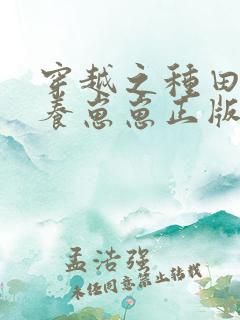 穿越之種田
養崽崽正版
孟浩强
未任同意禁止转载